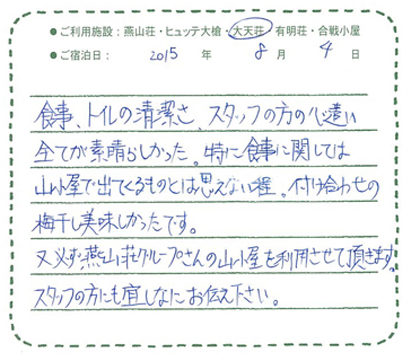 ●ご利用施設：燕山荘・ヒュッテ大槍・大天荘・有明荘・合戦小屋
●ご宿泊日： 2015 年 8 月 4 日
食事、トイレの清潔さ、スタッフの方の心遣い
全てが素晴らしかった。特に食事に関しては
山小屋で出てくるものとは思えない程。付け合わせの
梅干し美味しかったです。
又必ず燕山荘グループさんの山小屋を利用させて頂きます。
スタッフの方にも宜しなにお伝え下さい。